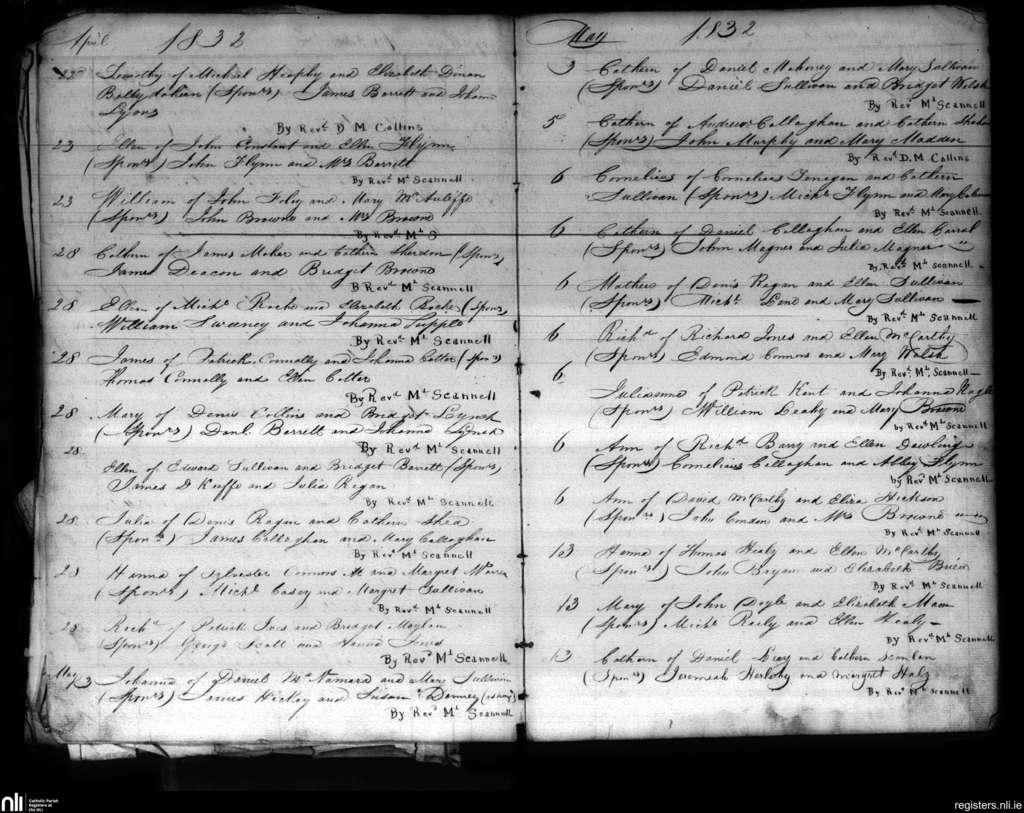 April 1832
22 Timothy of Michael Heaphy and Elizabeth Dinan
(Sponrs) James Barrett and
Lyons
By Revd. D M Collins
23 Ellen of John Constant and Ellen Flynn
(Sponrs) John Flynn and Mrs Barrett
By Revd. Mt Scannell
23 William of John Foley and Mary McAuliffe
(Sponrs) John Browne and Mrs Browne
By Revd. Mt S
28 Cathern of James Meher and Cathern Sheedon (Sponrs)
James Deacon and Bridget Browne
B Revd Mt Scannell
28 Ellen of Michl Roche and Elizabeth Roche (Sponrs)
William Sweeney and Johanna Supple
By Revd Mt Scannell
28 James of Patrick Connolly and Johanna Cotter (Sponrs)
Thomas Connolly and Ellen Cotter
By Revd Mt Scannell
28 Mary of Denis Collins and Bridget Lynch
(Sponrs) Danl. Barrett and Johanna
By Revd Mt Scannell
28
Ellen of Edward Sullivan and Bridget Barrett (Sponrs)
James O Keeffe and Julia Regan
By Revd Mt Scannell
28 Julia of Denis Regan and Cathern Shea
(Sponrs) James Callaghan and Mary Callaghan
By Revd Mt Scannell
28 Hanna of Sylvester Connors and Margret Warren
(Sponrs) Michl Casey and Margret Sullivan
By Revd Mt Scannell
28 Richd of Patrick Ives and Bridget Moylan
(Sponrs) George Scott and Hanna
By Revd Mt Scannell
May 3 Johanna of Daniel McNamara and Mary Sullivan
(Sponrs) James Hickey and Susan
By Revd Mt Scannell
May 1832
3 Cathern of Daniel Mahoney and Mary Sullivan
(Sponrs) Daniel Sullivan and Bridget Welsh
By Rev Mt Scannell
5 Cathern of Andrew Callaghan and Cathern
(Sponrs) John Murphy and Mary Madden
By Revd D. M Collins
6 Cornelius of Cornelius Finegan and Cathern
Sullivan (Sponrs) Michl Flynn and Mary
By Revd Mt Scannell
6 Cathern of Daniel Callaghan and Ellen Carral
(Sponrs) John Magner and Julia Magner
By Revd Mt Scannell
6 Mathew of Denis Regan and Ellen Sullivan
(Sponrs) Michl Lane and Mary Sullivan
By Revd Mt Scannell
6 Richd of Richard Jones and Ellen McCarthy
(Sponrs) Edmond Connors and Mary Walsh
By Revd Mt Scannell
6
Julianna of Patrick Kent and Johanna Nagle
(Sponrs) William Leahy and Mary Browne
by Revd Mt Scannell
6 Ann of Richd Barry and Ellen Dawling
(Sponrs) Cornelius Callaghan and Abbey Flynn
by Revd Mt Scannell
6 Ann of David McCarthy and Eliza Hickson
(Sponrs) John Condon and Mrs Browne
By Revd Mt Scannell
13 Hanna of Thomas Healy and Ellen McCarthy
(Sponrs) John Bryan and Elizabeth Brien
By Revd Mt Scannell
13 Mary of John Doyle and Elizabeth
(Sponrs) Michl Reily and Ellen Healy
By Revd Mt Scannell
13 Cathern of Daniel Leary and Cathern Scanlan
(Sponrs) Jeremiah Herlihy and Margret Haly
By Revd Mt Scannell
nli Catholic Parish
Registers at
the NLI
registers.nli.ie